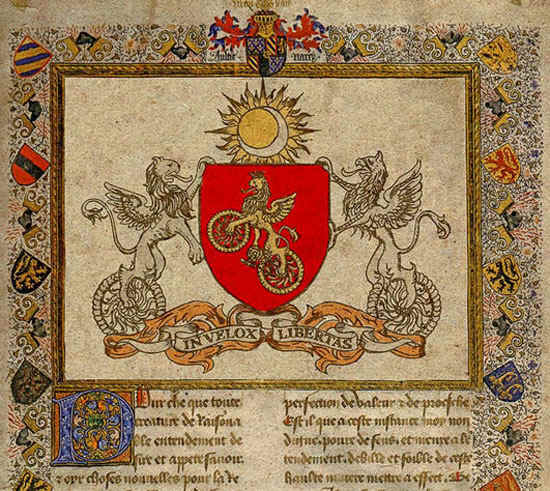 IN VELOX LIBERTAS
Pour che que toute
creature de Raisona
ble entendement de
sire et appete sauoir
& oyr choses nouuelles pour la Re
perfection de valeur & de proesche
Est il que a ceste instance moy non
digne, poure de sens, et menre a
tendement, debille et foible de ceste
haulte matere mettre a effect.